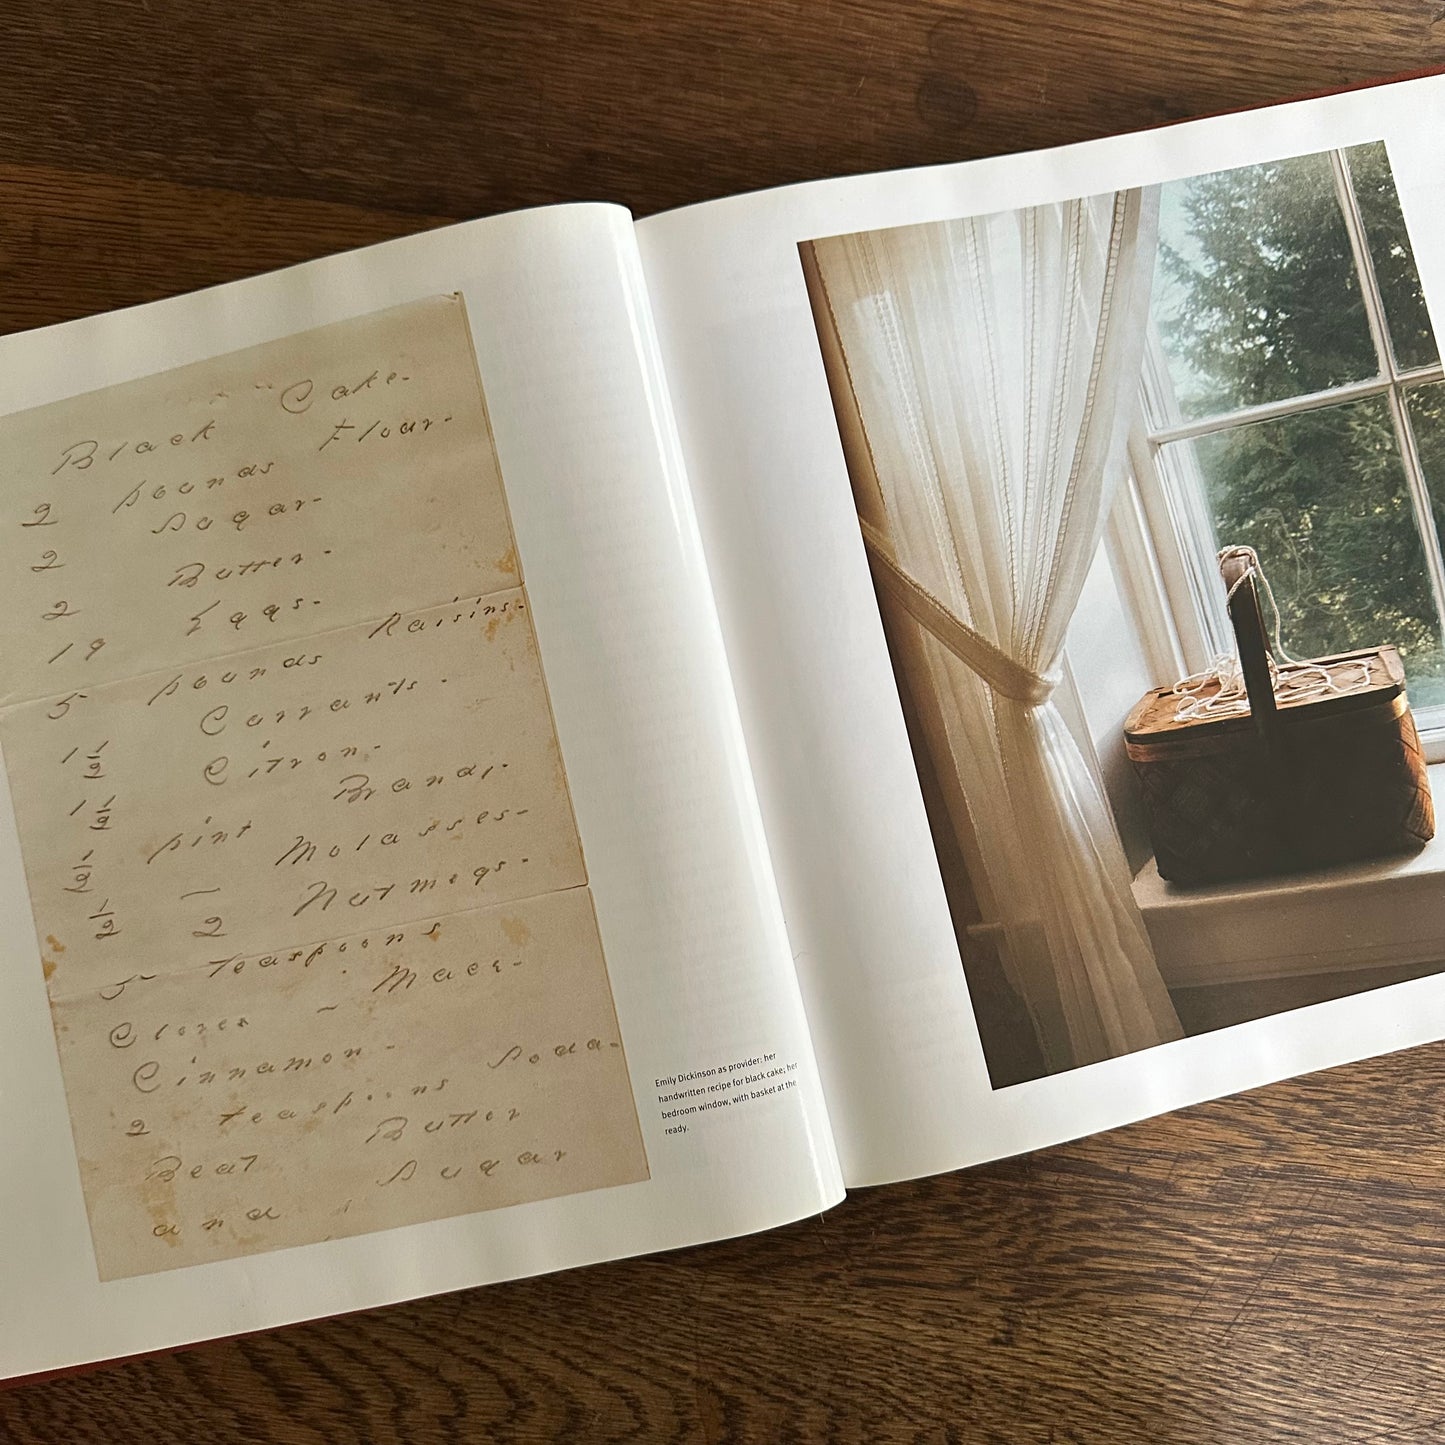 Black Cake-
2 pounds Flour-
2 Sugar-
2 Butter-
19 Eggs-
5 pounds Raisins-
1 1/2 Currants-
1 1/2 Citron-
1/2 pint Brandy-
1/2 — Molasses-
2 Nutmegs-
5 teaspoons
Cloves — Mace-
Cinnamon-
2 teaspoons Soda-
Beat Butter
and Sugar
Emily Dickinson as provider: her
handwritten recipe for black cake; her
bedroom window, with basket at the
ready.